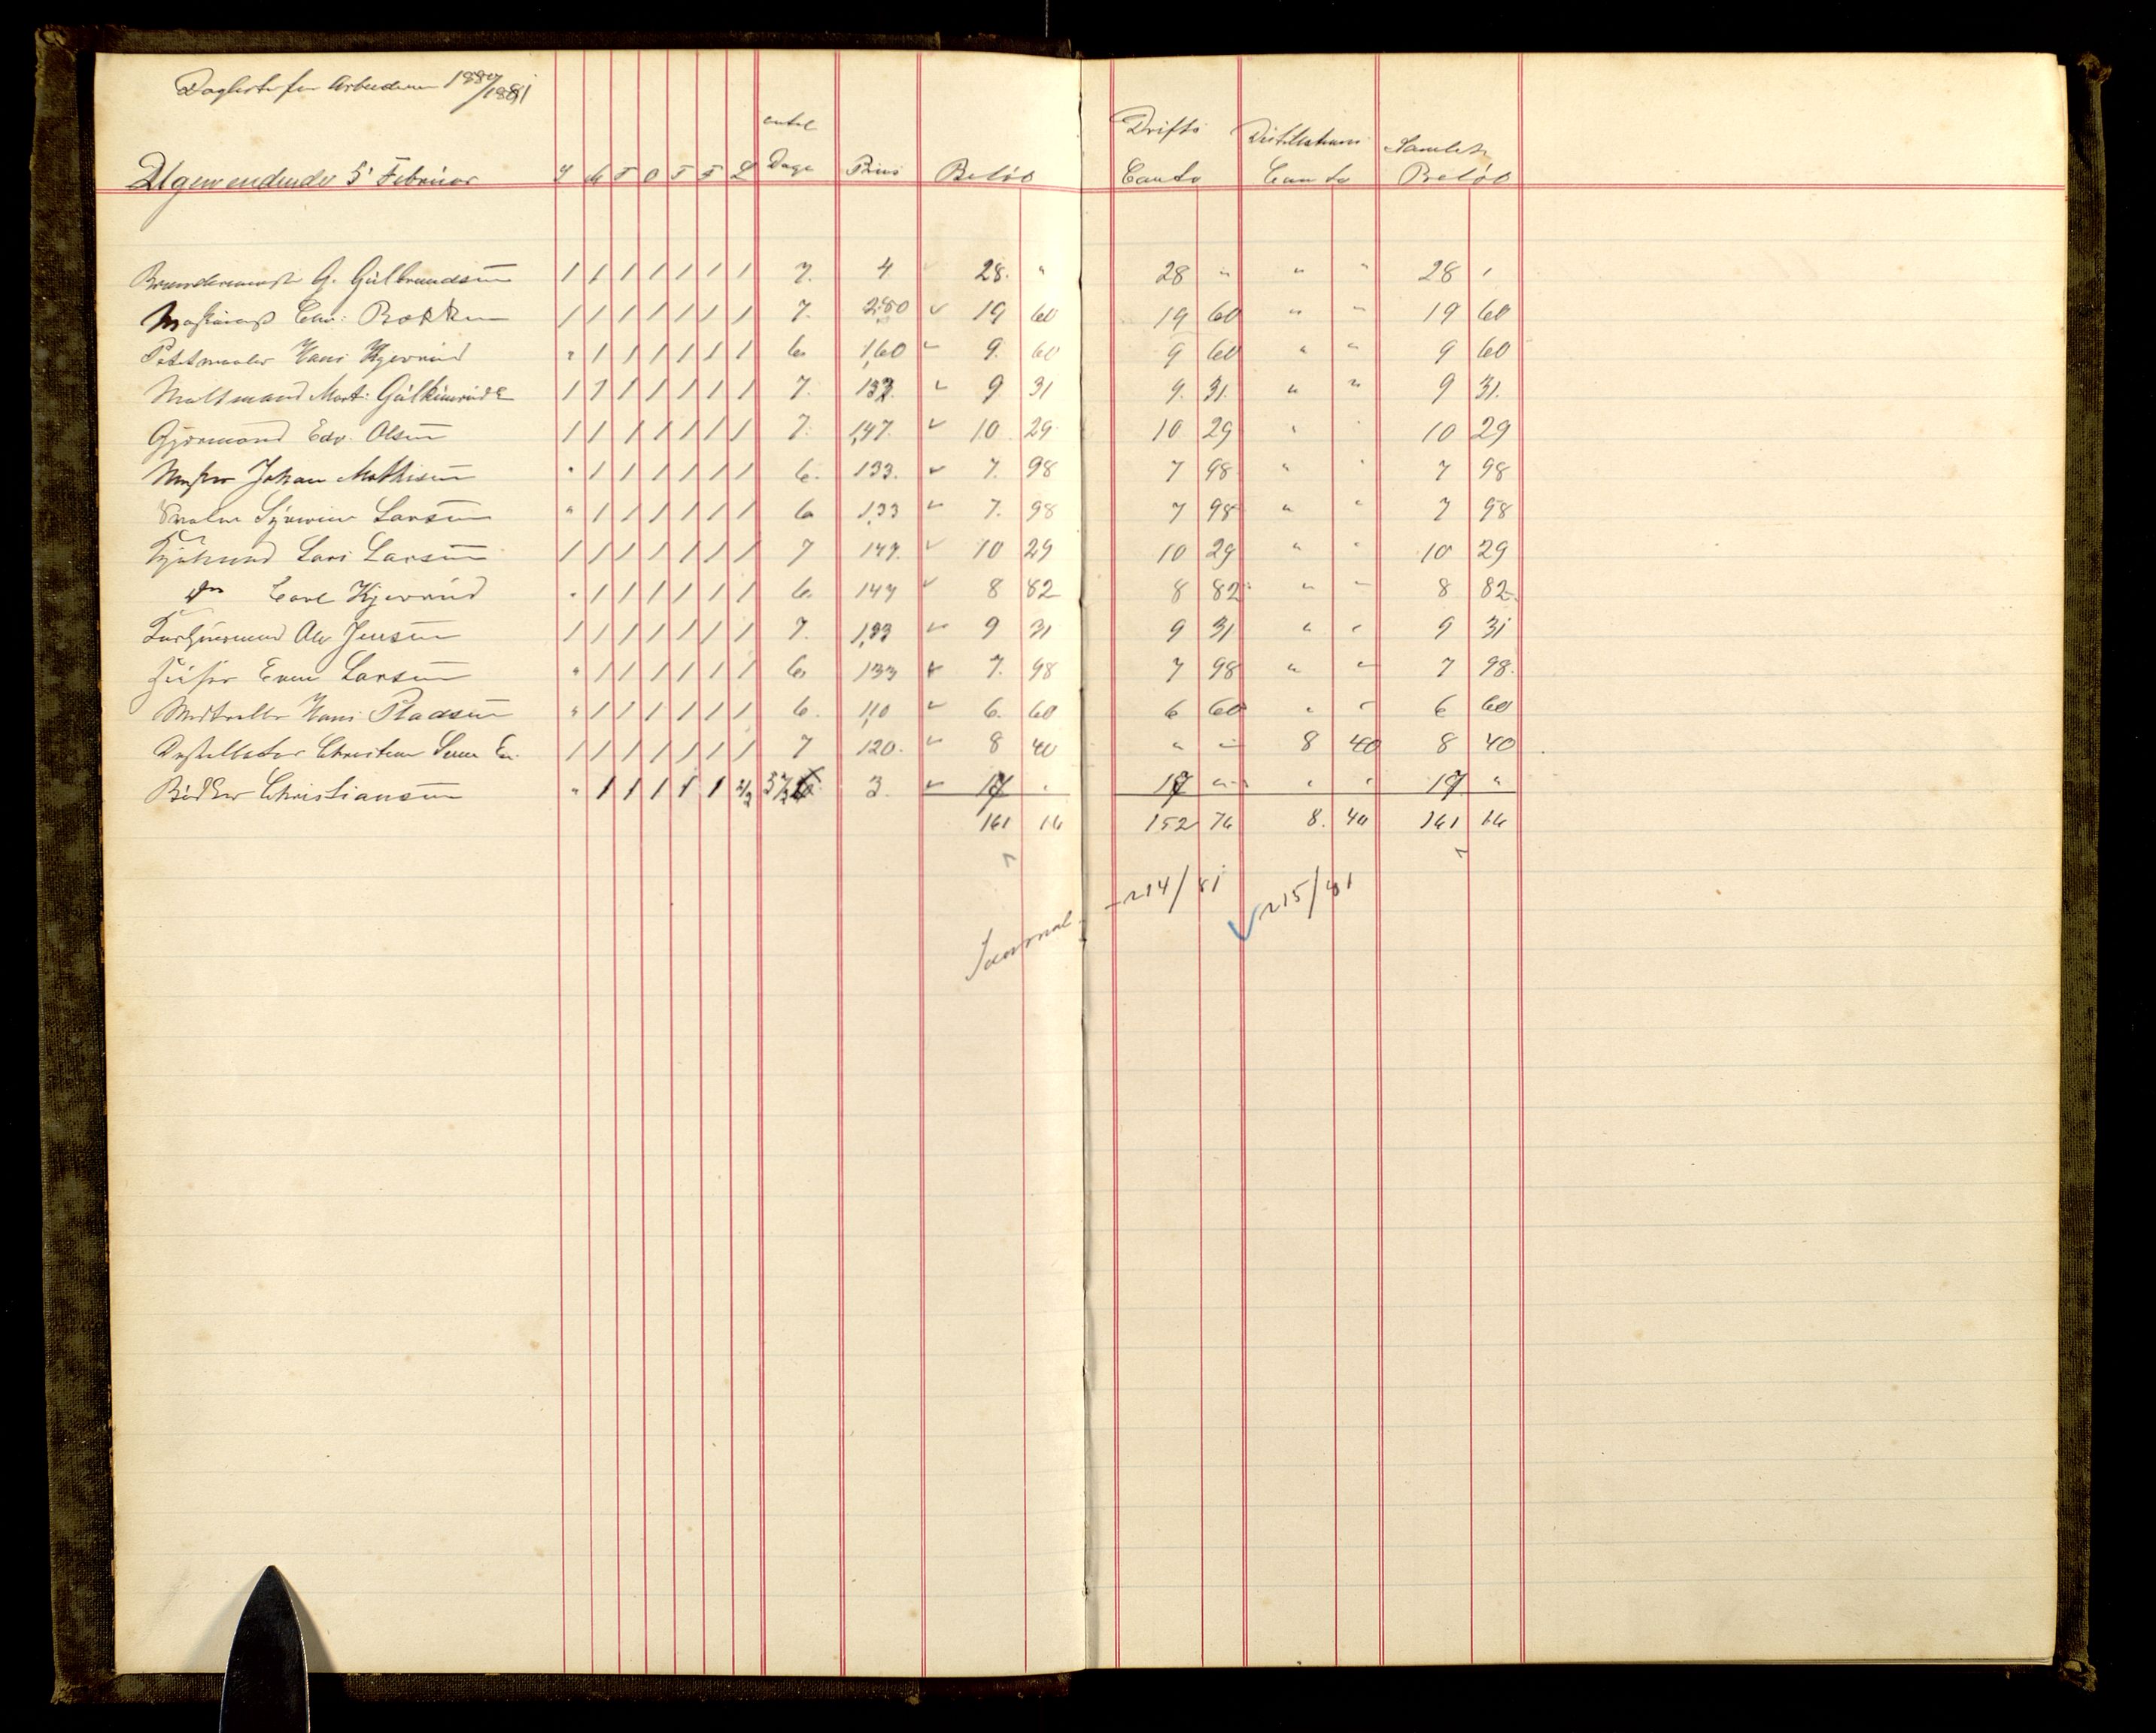 Dagliste for Arbeiderne 1880/1881
antal Drifts Destillations Samlet
Ugen endende 5' Februar S M T O T F L Dage Priis Beløb Conto Conto Beløb
G. Gulbrandsen 1 1 1 1 1 1 1 7. 4 28. " 28 " " " 28 "
Chr: Bakken 1 1 1 1 1 1 1 7. 2.80 19 60 19 60 " " 19 60
Hans Kjeverud " 1 1 1 1 1 1 6 1,60 9. 60 9 60 " " 9 60
Maltmand Mart: 1 1 1 1 1 1 1 7. 133. 9 31 9. 31. " " 9 31.
Gjærmand Edv. Olsen 1 1 1 1 1 1 1 7. 1,47. 10 29 10 29 " " 10 29
Johan Mathisen " 1 1 1 1 1 1 6. 133. 7. 98 7 98 " " 7 98
Larsen " 1 1 1 1 1 1 6 1,33 7. 98 7 98 " " 7 98
Lars Larsen 1 1 1 1 1 1 1 7 147. 10 29 10 29 " " 10 29
do Carl Kjeverud " 1 1 1 1 1 1 6. 147 8 82 8 82 " " 8 82.
Jensen 1 1 1 1 1 1 1 7. 1,33 9 31 9 31 " " 9 31
Even Larsen " 1 1 1 1 1 1 6. 133 7. 98 7 98 " " 7 98.
Hans Pladsen " 1 1 1 1 1 1 6. 1,10 6. 60 6 60 " " 6 60
Christian 1 1 1 1 1 1 1 7 120. 8 40 " " 8 40 8 40
Bødker Christiansen " 1 1 1 1 1 2/3 5 2/3 3. 17 " 17 " " " 17 "
161 16 152 76 8. 40 161 16
Journal - 14/81 15/81